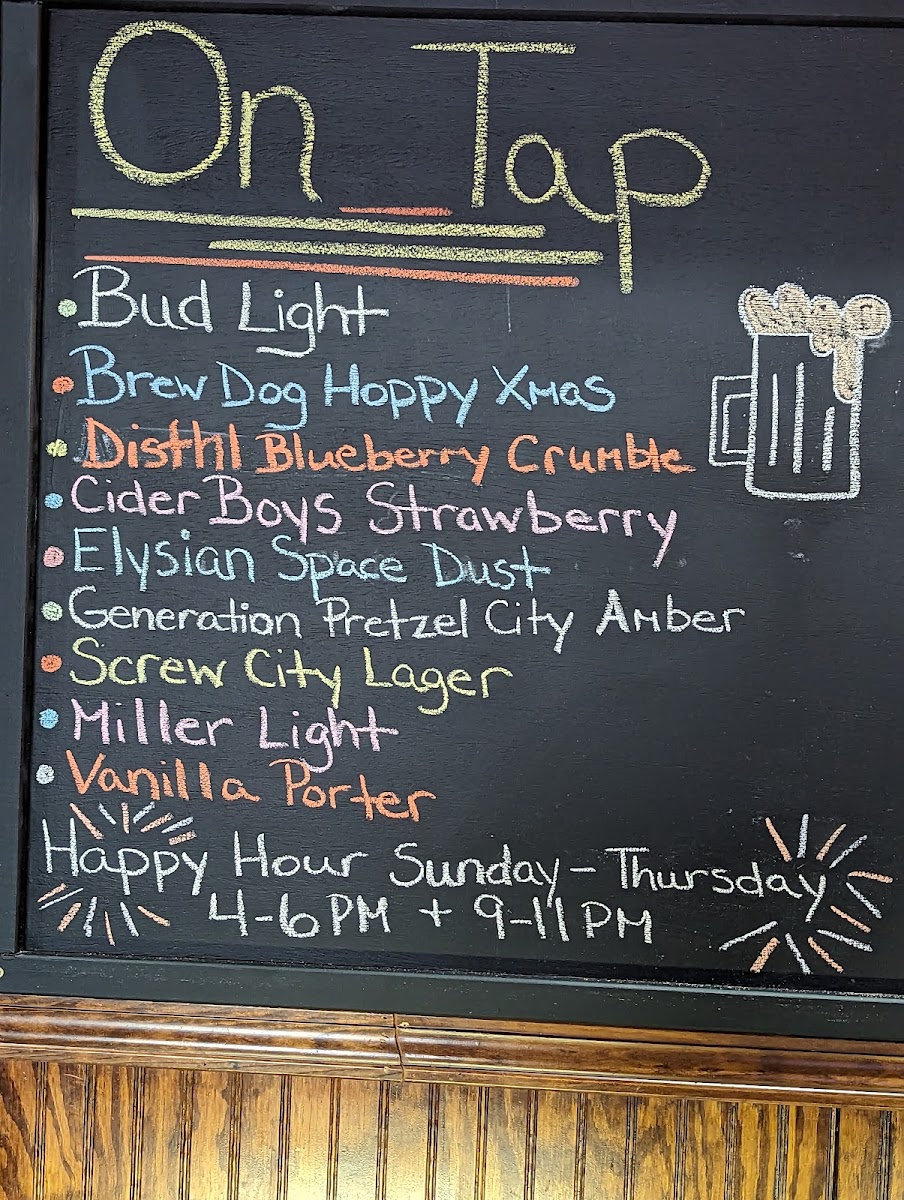 On Tap
Bud Light
Brew Dog Hoppy Xmas
Disthl Blueberry Crumble
Cider Boys Strawberry
Elysian Space Dust
Generation Pretzel City Amber
Screw City Lager
Miller Light
Vanilla Porter
Happy Hour Sunday - Thursday
4-6 PM + 9-11 PM